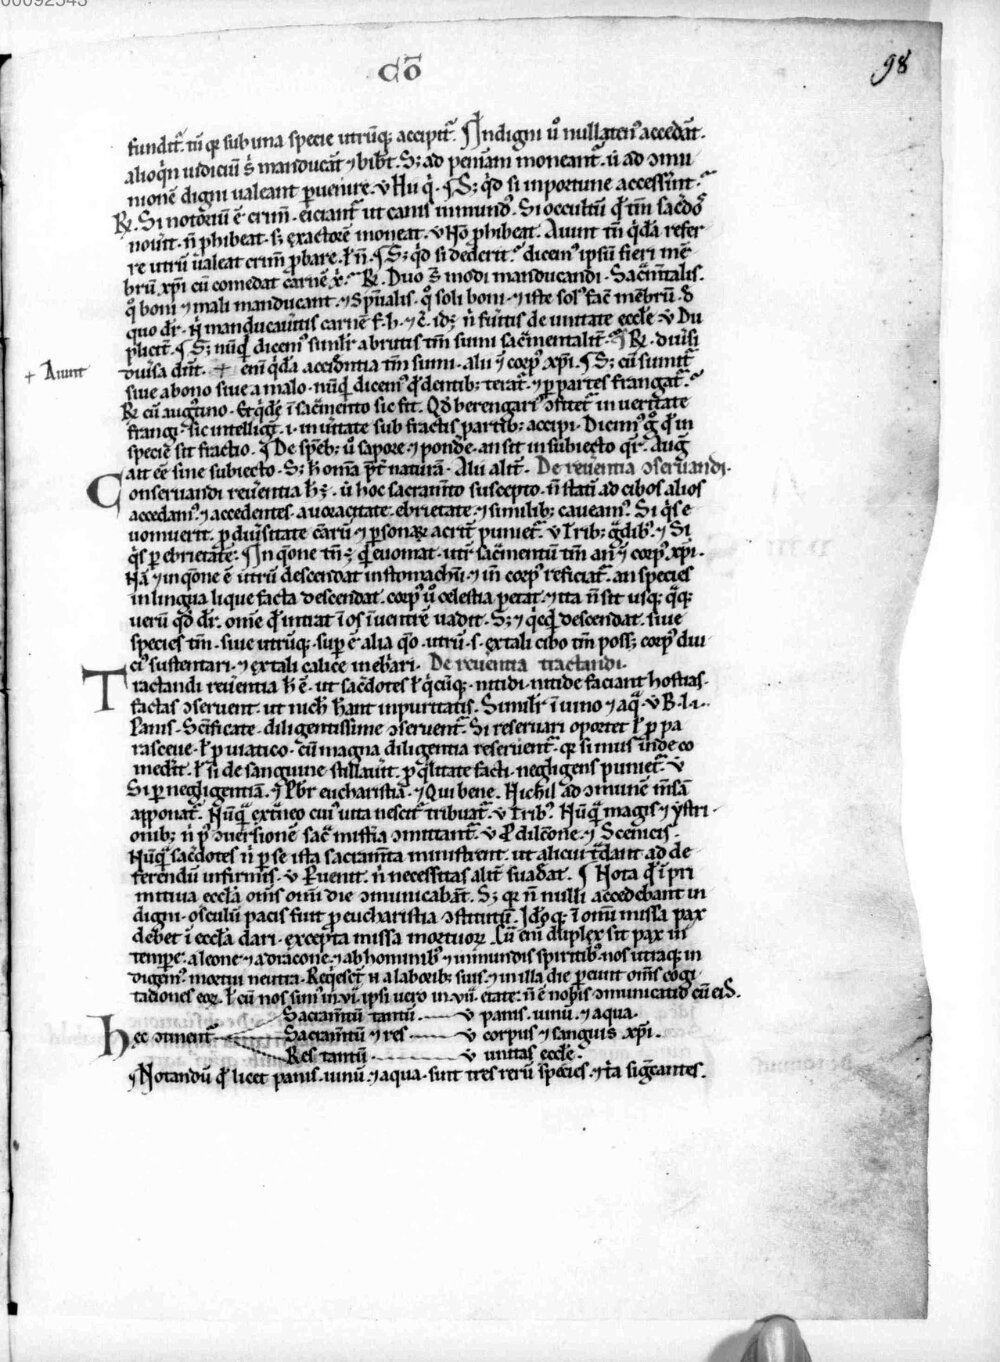 00092343
Cō
98
fundit᷑. tn̄ qꝛ sub una specie utrūq; accipit᷑. ¶ Indigni ů nullaten᷒ accedāt.
alioq̇n iudiciū ſ manducāt ⁊ bibt̄. S; ad penīam moneant᷑. ů ad ↄmu
nionē digni ualeant ꝑuenire. ỽ Hii q̇. ¶ S; qd̄ si inportune accesserint.
℞. Si notoriū ē crim̄. eiciant᷑ ut canis inmund᷒. Si occultū
nouit. n̄ ꝓhibeat. s; exactorē moneat. ỽ Nō ꝓhibeat. Aiunt tn̄ q̇dā refer
re utrū ualeat crim̄ ꝓbare. ł n̄. ¶ S; qd̄ si dederit. dicem᷒ ipsū fieri mē
brū xp̄i cū comedat carnē x̄. ℞. Duo s̄ modi manducandi. Sac̄m̄talis.
q̊ boni ⁊ mali manducant. ⁊ Sp̄ualis. q̊ soli boni. ⁊ iste sol᷒ fac̄ mēbrū. d̄
quo dr̄. ṅ manducaueritis carnē f. h. ⁊ c̄. id; n̄ fueritis de unitate eccłe. ỽ Du
plicit̄. ¶ S; nūq̇d dicem᷒ simłr a brutis tm̄ sumi sac̄mentalit̄. ℞. diuersi
diuersa dn̄t. + eni q̇dā accidentia tm̄ sumi. alii ⁊ corp᷒ xp̄i. ¶ S; cū sumit᷑
+ Aiunt
siue a bono siue a malo. nūq̇d dicem᷒ qd̄ dentib; terat᷑. ⁊ ꝑ partes frangat᷑.
℞ cū augustino. Et q̇dē ī sac̄mento sic fit. Qd̄ berengari᷒ ↄfitet᷑ in ueritate
frangi. sic intelligit᷑. i. in ueritate sub fractis partib; accipi. Dicim᷒ g̊ qd̄ in
specie sit fractio. ¶ De sp̄eb; ů sapore ⁊ pondere. an sit in subiecto qr̄. Aug̃
ait eē sine subiecto. S; h̄ om̄a p̄t naturā. Alii alit̄. De reuerentia ↄseruandi.
Conseruandi reuerentia h̄;. ů hoc sacramento suscepto. n̄ statī ad cibos alios
accedam᷒. ⁊ accedentes. a uoracitate. ebrietate. ⁊ similib; caueam᷒. Si q̇s e
uomuerit. ꝑ diuersitate earū ⁊ ꝑsonaꝝ acrit̄ puniet᷑. ỽ Trib; gͣdib᷒. ⁊ Si
q̇s ꝑ ebrietatē. ¶ In q̄one tn̄; qd̄ euomat. utrū sac̄mentū tm̄ an ⁊ corp᷒ xp̄i.
Nā ⁊ in q̄one ē utrū descendat in stomachū. ⁊ in corp᷒ reficiat᷑. an species
in lingua lique facta descendat. corp᷒ ů celestia petat. ⁊ ita n̄ sit usq; q̄q;
uerū qd̄ dr̄. om̄e qd̄ intrat ī os ī uentrē uadit. S; ⁊ q̇cq̇d descendat. siue
species tm̄. siue utrūq;. sup̄ ē alia q̄o. utrū. s. ex tali cibo tm̄ poss; corp᷒ diu
ci᷒ sustentari. ⁊ ex tali calice inebriari. De reuerentia tractandi.
Tractandi reuerentia h̄ ē. ut sac̄dotes ł q̇cūq;. nitidi. nitide faciant hostias.
factas ↄseruent. ut nich̄ h̄ant inpuritatis. Similr̄ ī uino ⁊ aq̄. ỽ B. l. i.
Panis. Sc̄ificate. diligentissime ↄseruent᷑. Si reseruari oportet ł ꝓ pa
rasceue. ł ꝓ uiatico. cū magna diligentia reseruent᷑. qꝛ si mus inde co
mederit. ł si de sanguine stillauerit. ꝓ q̄litate facti. negligens puniet᷑. ỽ
Si ꝑ negligentiā. ⁊ Pbr̄ eucharistiā. ⁊ Qui bene. Nichil ad ↄmunē m̄sā
apponat᷑. Nūq̄ extͣneo cui᷒ uita nescit᷑ tribuat᷑. ỽ Trib᷒. Nūq̄ magis ⁊ ystri
onib; n̄ p᷒ ↄuersionē sac̄ misteria ↄmittant᷑. ỽ Pͦ dilc̄one. ⁊ Scenicis.
Nūq̄ sac̄dotes n̄ ꝑ se ista sacram̄ta ministrent. ut alicui tͣdant ad de
ferendū infirmis. ỽ Peruenit. n̄ necessitas alit̄ suadeat. ¶ Nota qd̄ ī pri
mitiua eccła om̄s om̄i die ↄmunicabāt. S; qꝛ n̄ nulli accedebant in
digni. osculū pacis fuit ꝓ eucharistia ↄstitutū. Idcoq; ī om̄i missa pax
debet ī eccła dari. excepta missa mortuoꝝ. Cū eni duplex sit pax in
tempore. a leone ⁊ a dracone. ⁊ ab hominib᷒ ⁊ inmundis spiritib᷒. nos utraq; in
digem᷒. mortui neutra. Reqiescūt n̄ a laborib; suis. ⁊ in illa die ꝑeunt om̄s cogi
tationes eoꝝ. ł cū nos sim᷒ in .vi. ipsi uero in .vii. etate. n̄ ē nobis ↄmunicatio cū eis.
Sacram̄tū tantū — ỽ panis. uinū. ⁊ aqua.
Hec ↄtinent Sacram̄tū ⁊ res — ỽ corpus ⁊ sanguis xp̄i.
Res tantū — ỽ unitas eccłe.
⁊ Notandū qd̄ licet panis. uinū. ⁊ aqua. sunt tres rerū species. ⁊ ita significantes.